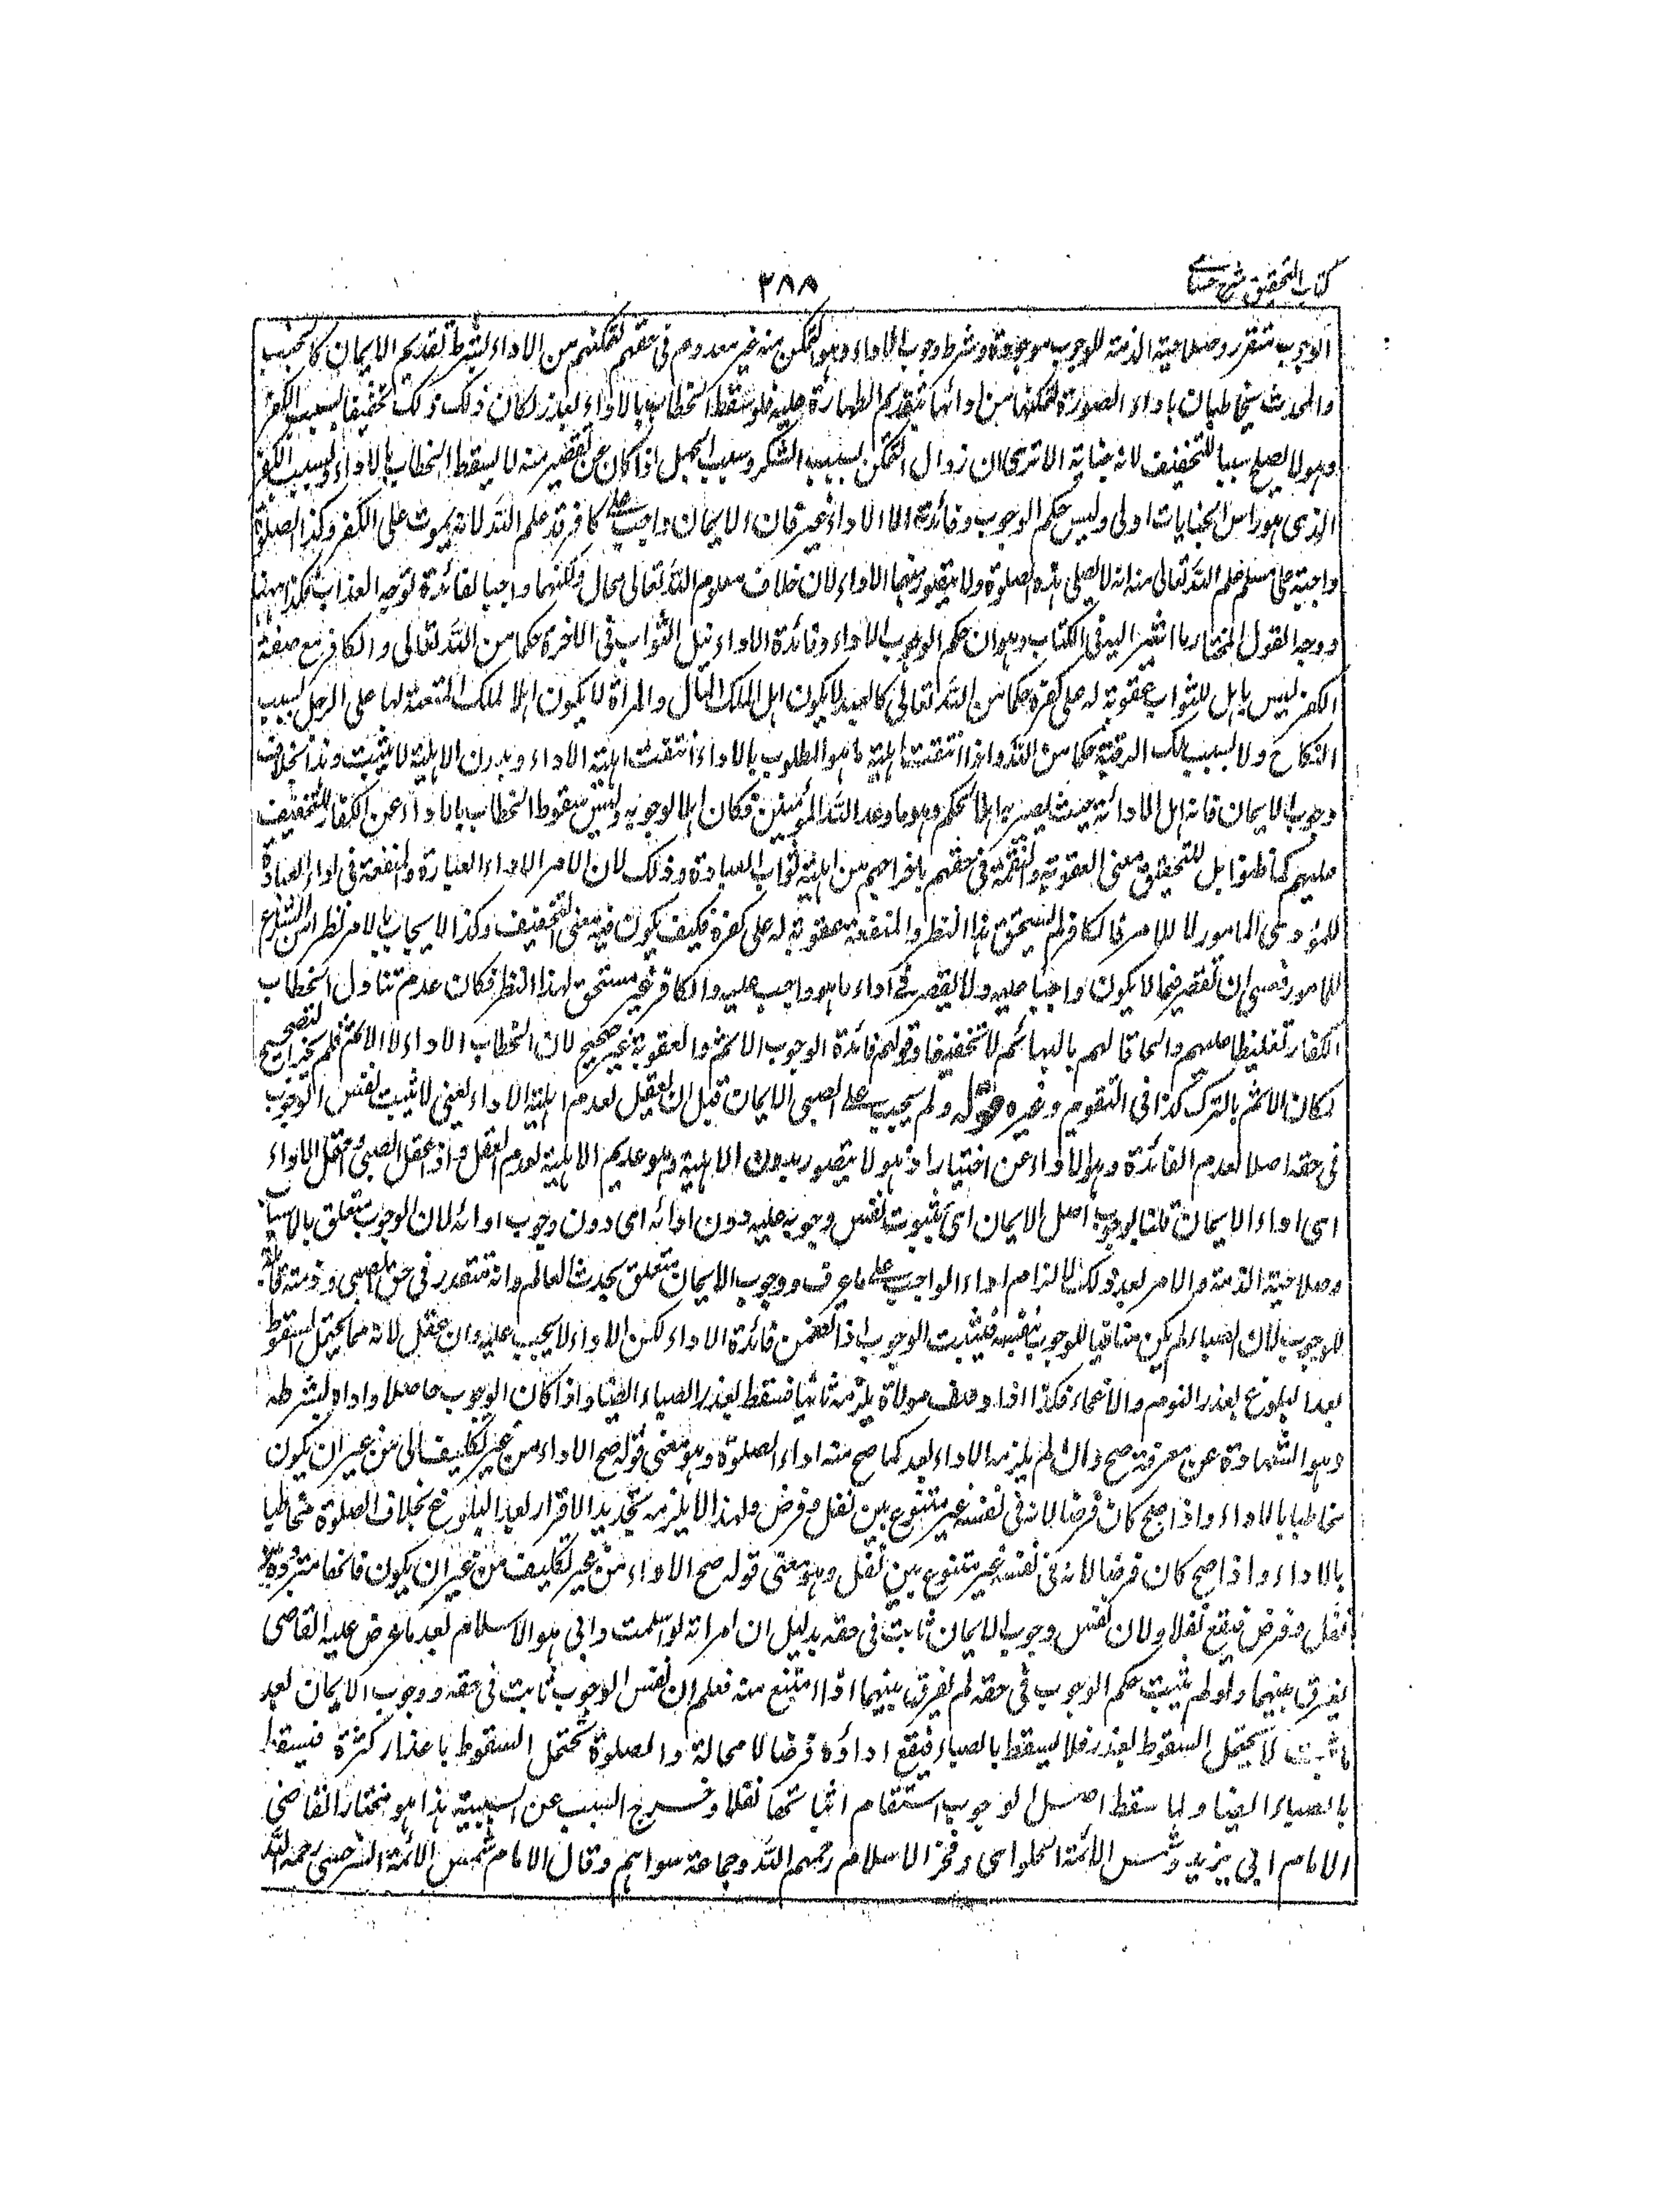 كتاب التحقيق شرح حسامى
٢٨٨
الوجوب متقرر وصلاحية الذمة للوجوب موجودة وشرط وجوب الاداء وهو التمكن منه غير معدوم فى حقهم لتمكنهم من الاداء بشرط تقديم الايمان كالجنب
والمحدث يخاطبان باداء الصلوة لتمكنهما من ادائها بتقديم الطهارة عليه فلو سقط الخطاب بالاداء بعذر لكان ذلك تخفيفا بسبب الكفر
وهو لا يصلح سببا للتخفيف لانه جناية الا ترى ان زوال التمكن بسبب السكر وبسبب الجهل اذا كان عن تقصير منه لا يسقط الخطاب بالاداء فبسبب الكفر
الذى هو راس الجنايات اولى وليس حكم الوجوب وفائدته الا الاداء غير فان الايمان واجب على كافر قد علم الله انه يموت على الكفر وكذا الصلوة
واجبة على مسلم علم الله تعالى منه انه لا يصلى هذه الصلوة ولا يتصور منهما الاداء لان خلاف معلوم الله تعالى محال ولكنهما واجبا لفائدة توجه العذاب فكذا ههنا
ووجه القول المختار ما اشير اليه فى الكتاب وهو ان حكم الوجوب الاداء وفائدة الاداء نيل الثواب فى الاخرة حكما من الله تعالى والكافر مع صفة
الكفر ليس باهل للثواب عقوبة له على كفره حكما من الله تعالى كالعبد لا يكون اهلا لملك المال والمراة لا يكون اهلا لملك المتعة لها على الرجل بسبب
النكاح ولا بسبب ملك الرقبة حكما من الله واذا انتفت اهلية ما هو المطلوب بالاداء انتفت اهلية الاداء وبدون الاهلية لا يثبت وهذا بخلاف
وجوب الايمان فانه اهل لادائه بحيث يصير به اهلا لحكمه وهو ما وعد الله المؤمنين فكان اهلا لوجوبه وليس سقوط الخطاب بالاداء عن الكفار للتخفيف
عليهم كما ظنوا بل لتحقيق معنى العقوبة والنقمة فى حقهم باخراجهم من اهلية ثواب العبادة وذلك لان الامر لاداء العبادة والمنفعة فى اداء العبادة
للمؤدى المامور لا للامر فالكافر لم يستحق هذا النظر والمنفعة عقوبة له على كفره فكيف يكون فيه معنى التخفيف وكذا الايجاب بالامر نظر من الشارع
للمامور فعسى ان تقصير فيما لا يكون واجبا عليه ولا يقصر فى اداء ما هو واجب عليه والكافر غير مستحق لهذا النظر فكان عدم تناول الخطاب
الكفار تغليظا عليهم والحاقا لهم بالبهائم لا تخفيفا وقولهم فائدة الوجوب الاثم والعقوبة غير صحيح لان الخطاب الاداء لا الاثم فلم يجز لتصحيح
لمكان الاثم بالترك كذا فى التقويم وغيره قوله ولم يجب على الصبى الايمان قبل ان يعقل لعدم اهلية الاداء يعنى لا يثبت نفس الوجوب
فى حقه اصلا لعدم الفائدة وهو الاداء عن اختيار اذ هو لا يتصور بدون الاهلية وهو عديم الاهلية لعدم العقل واذا عقل الصبى واحتمل الاداء
اى اداء الايمان قلنا بوجوب اصل الايمان اى بثبوت نفس وجوبه عليه دون ادائه اى دون وجوب ادائه لان الوجوب متعلق بالاسباب
وصلاحية الذمة والامر بعد ذلك لالزام اداء الواجب على ما عرف ووجوب الايمان متعلق بحدث العالم وانه متقرر فى حق الصبى وذمته قابلة
للوجوب لان الصباء لم يكن منافيا للوجوب بنفسه فيثبت الوجوب اذا تضمن فائدة الاداء لكن الاداء لا يجب عليه وان عقل لانه مما يحتمل السقوط
بعد البلوغ بعذر النوم والاغماء فكذا اذا وصف مولاه يلزمه ثانيا فسقط بعذر الصباء ايضا واذا كان الوجوب حاصلا واداه بشرطه
وهو الشهادة عن معرفة صح وان لم يلزمه الاداء بعد كما صح منه اداء الصلوة وهو معنى قوله صح الاداء من غير تكليف الى من غير ان يكون
مخاطبا بالاداء واذا صح كان فرضا لانه فى نفسه غير متنوع بين نفل وفرض ولهذا لا يلزمه تجديد الاقرار بعد البلوغ بخلاف الصلوة مخاطبا
بالاداء واذا صح كان فرضا لانه فى نفسه غير متنوع بين نفل وهو معنى قوله صح الاداء من غير تكليف من غير ان يكون
نفل وفرض فيقع نفلا ولان نفس وجوب الايمان ثابت فى حقه بدليل ان امراته لو اسلمت وابى هو الاسلام بعد ما عرض عليه القاضى
يفرق بينهما ولو لم يثبت حكم الوجوب فى حقه لم يفرق بينهما اذا امتنع منه فعلم ان نفس الوجوب ثابت فى حقه ووجوب الايمان بعد
ما ثبت لا يحتمل السقوط بعذر فلا يسقط بالصباء فيقع اداؤه فرضا لا محالة والصلوة تحتمل السقوط باعذار كثيرة فيسقط
بالصباء ايضا ولما سقط اصل الوجوب استقام اثباتها نفلا وخرج السبب عن السببية هذا هو مختار القاضى
الامام ابى يزيد وشمس الائمة الحلوانى وفخر الاسلام رحمهم الله وجماعة سواهم وقال الامام شمس الائمة السرخسى رحمه الله